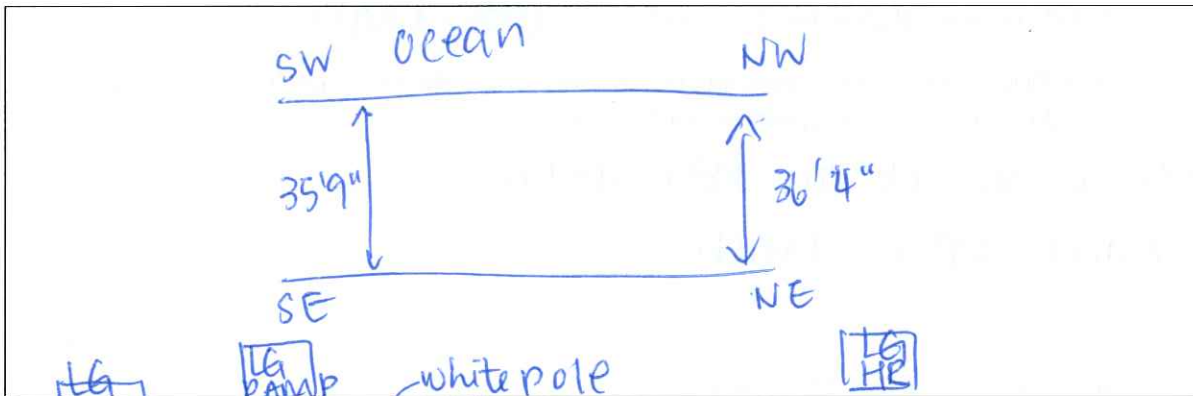 SW ocean NW
35'9" 36'4"
SE NE
LG LG LG
RAMP white pole HQ